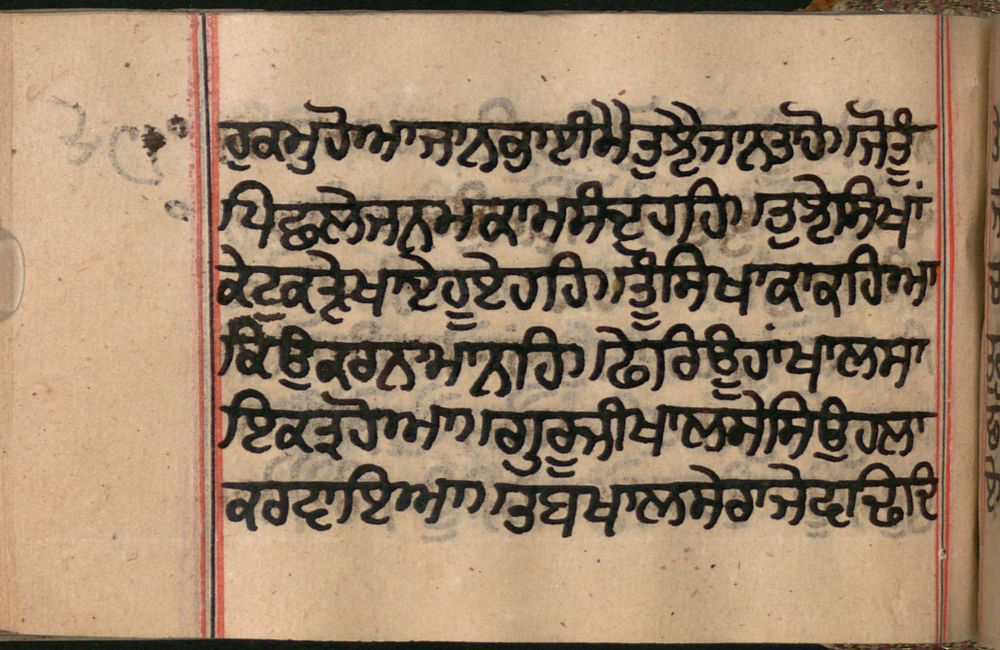 ਹੁਕਮੁ ਹੋਆ ਜਾਨ ਭਾਈ ਮੈ ਤੁਝੈ ਜਾਨਤਾ ਹੋ। ਜੋ ਤੂੰ
ਪਿਛਲੇ ਜਨਮ ਕਾ ਮਸੰਦੁ ਹਹਿ। ਤੁਝੇ ਸਿਖਾਂ
ਕੇ ਟੁਕੜੇ ਖਾਏ ਹੂਏ ਹਹਿ। ਤੂੰ ਸਿਖਾ ਕਾ ਕਹਿਆ
ਕਿਉ ਕਰ ਨ ਮਾਨਹਿ। ਫੇਰਿ ਊਹਾਂ ਖਾਲਸਾ
ਇਕਤ੍ਰ ਹੋਆ। ਗੁਰੂ ਜੀ ਖਾਲਸੇ ਸਿਉ ਹਲਾ
ਕਰਵਾਇਆ। ਤਬ ਖਾਲਸੇ ਰਾਜੇ ਦਾ ਢਿਢਿ